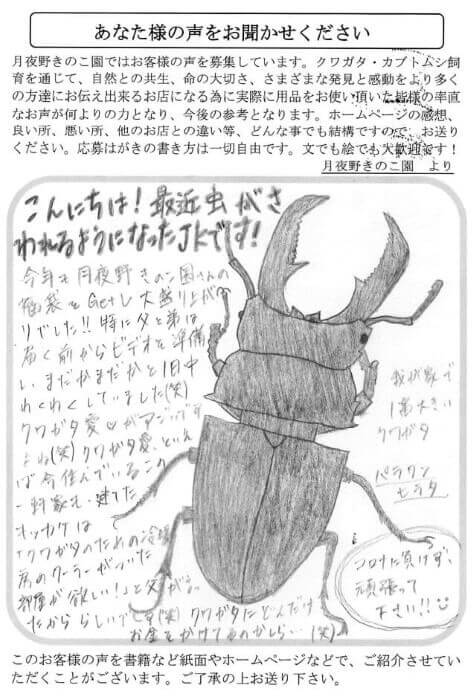 あなた様の声をお聞かせください
月夜野きのこ園ではお客様の声を募集しています。クワガタ・カブトムシ飼
育を通じて、自然との共生、命の大切さ、さまざまな発見と感動をより多く
の方達にお伝え出来るお店になる為に実際に用品をお使い頂いた皆様の率直
なお声が何よりの力となり、今後の参考となります。ホームページの感想、
良い所、悪い所、他のお店との違い等、どんな事でも結構ですので、お送り
ください。応募はがきの書き方は一切自由です。文でも絵でも大歓迎です！
月夜野きのこ園　より
こんにちは！最近虫がさ
われるようになったJKです！
今年も月夜野きのこ園さんの
福袋をGetし大盛り上が
りでした!! 特に父と弟は
届く前からビデオを準備
し、まだかまだかと1日中
わくわくしていました(笑)
クワガタ愛♡がアツいです
よね(笑) クワガタ愛、といえ
ば今住んでいるこの
一軒家も、建てた
キッカケは
「クワガタのための冷暖
房のクーラーがついた
部屋が欲しい!」と父が
だからららしいです(笑) クワガタにどんだけ
お金をかけてるのかしら…(笑)
我が家で
1番大きい
クワガタ
パラワン
ヒラタ
コロナに負けず、
頑張って
下さい!!
このお客様の声を書籍など紙面やホームページなどで、ご紹介させてい
ただくことがございます。ご了承の上お送り下さい。